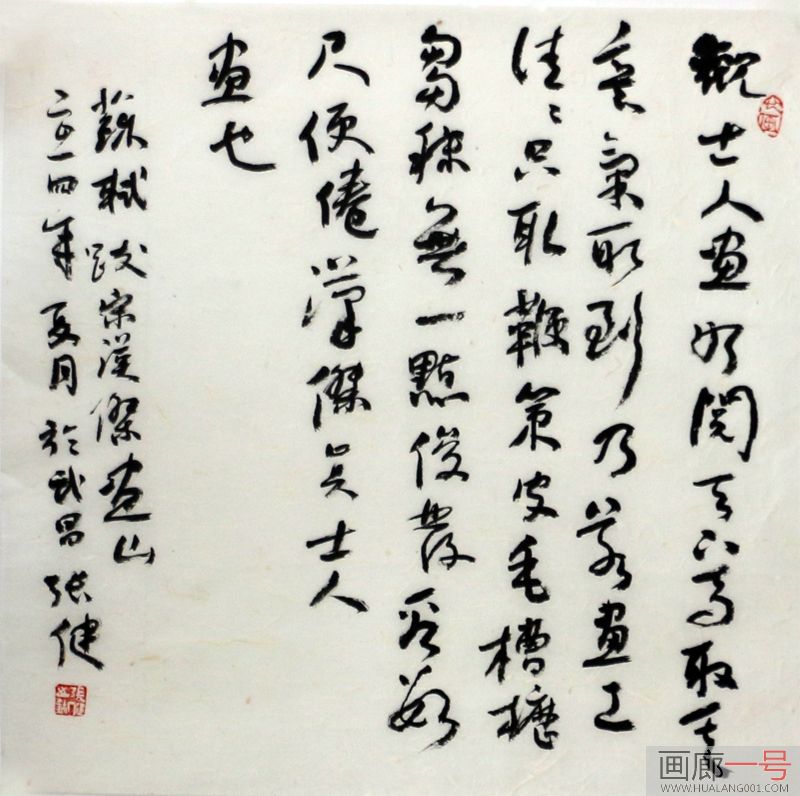 觀士人畫如閱天下馬取其
意氣所到乃若畫工
往〻只取鞭策皮毛槽櫪
芻秣無一點俊發看數
尺便倦漢傑真士人
畫也
蘇軾跋宋漢傑畫山
二〇一四年夏月於武昌張健
画廊一号
WWW.HUALANG001.COM